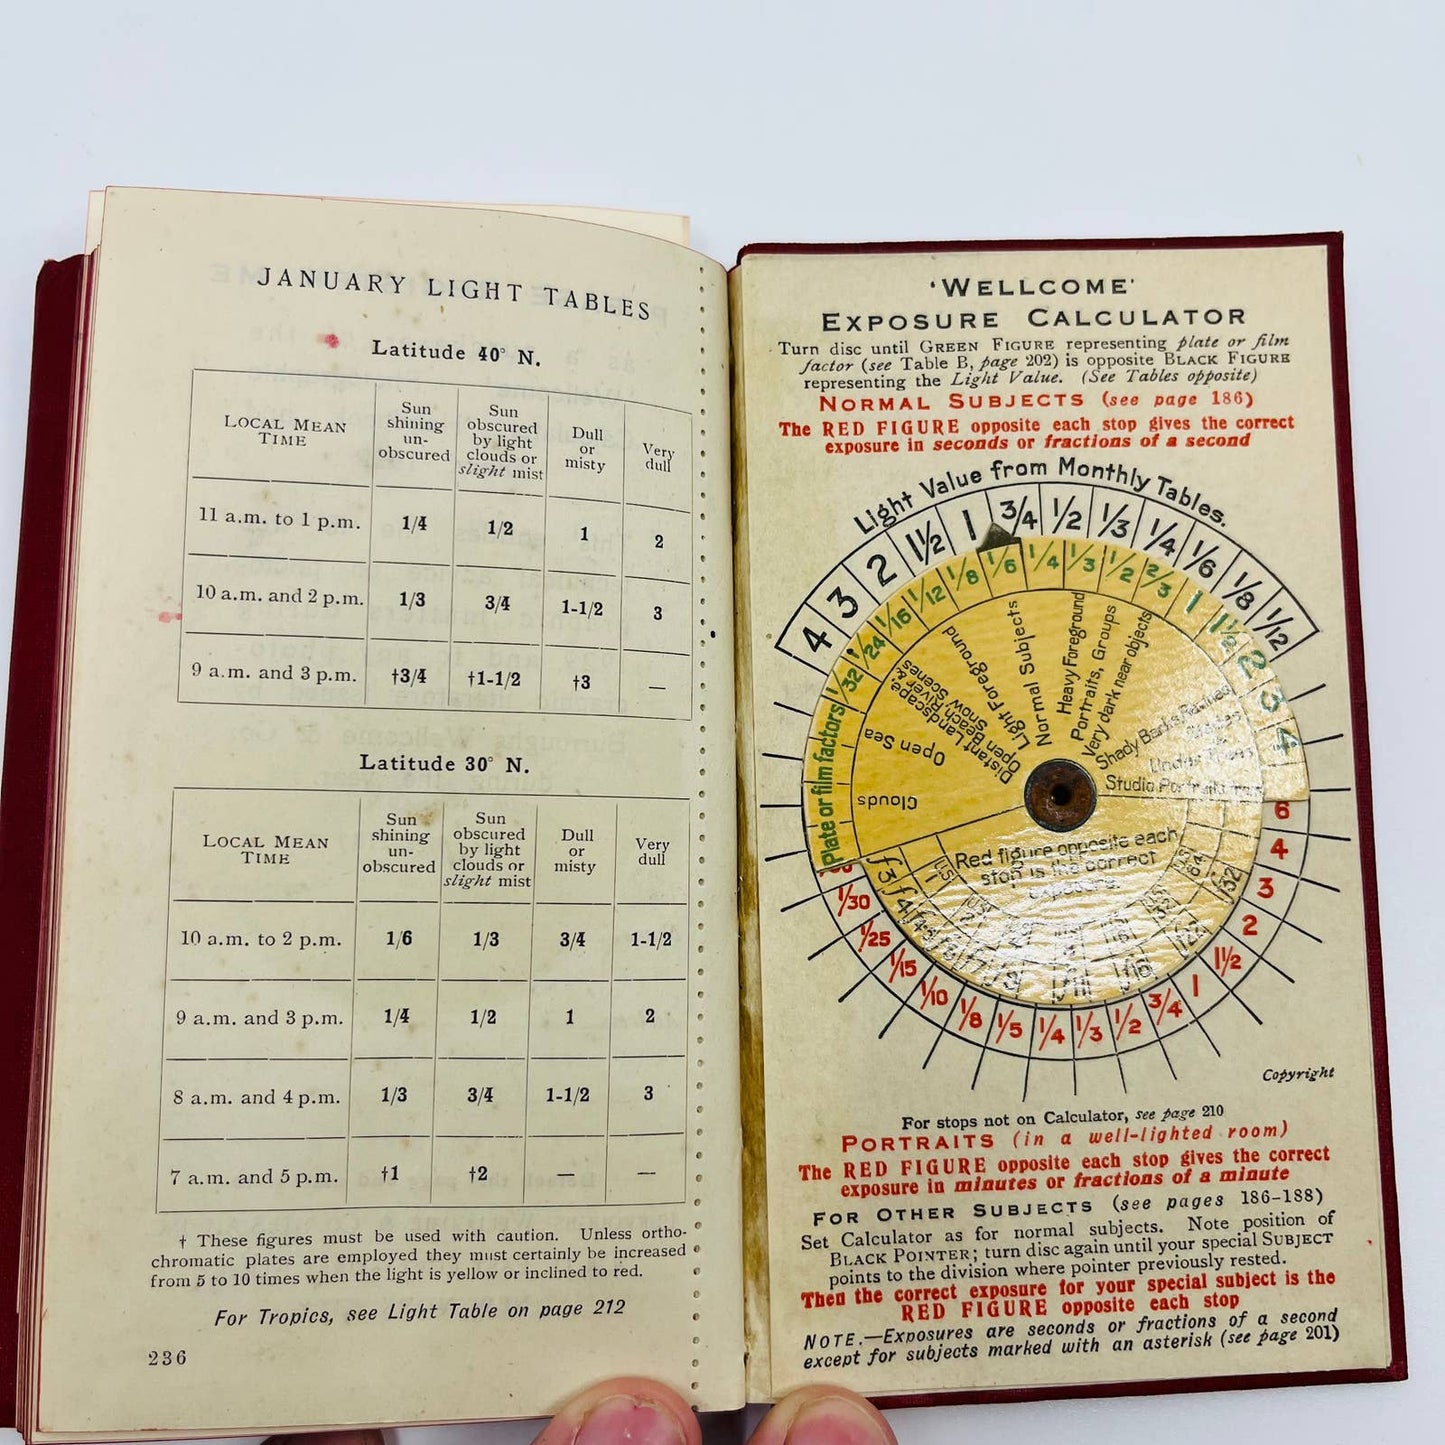 JANUARY LIGHT TABLES
Latitude 40° N.
LOCAL MEAN TIME
Sun shining un-obscured
Sun obscured by light clouds or slight mist
Dull or misty
Very dull
11 a.m. to 1 p.m. 1/4 1/2 1 2
10 a.m. and 2 p.m. 1/3 3/4 1-1/2 3
9 a.m. and 3 p.m. †3/4 †1-1/2 †3 —
Latitude 30° N.
LOCAL MEAN TIME
Sun shining un-obscured
Sun obscured by light clouds or slight mist
Dull or misty
Very dull
10 a.m. to 2 p.m. 1/6 1/3 3/4 1-1/2
9 a.m. and 3 p.m. 1/4 1/2 1 2
8 a.m. and 4 p.m. 1/3 3/4 1-1/2 3
7 a.m. and 5 p.m. †1 †2 — —
† These figures must be used with caution. Unless ortho-
chromatic plates are employed they must certainly be increased
from 5 to 10 times when the light is yellow or inclined to red.
For Tropics, see Light Table on page 212
236
'WELLCOME'
EXPOSURE CALCULATOR
Turn disc until GREEN FIGURE representing plate or film
factor (see Table B, page 202) is opposite BLACK FIGURE
representing the Light Value. (See Tables opposite)
NORMAL SUBJECTS (see page 186)
The RED FIGURE opposite each stop gives the correct
exposure in seconds or fractions of a second
Light Value from Monthly Tables.
4 3 2 1½ 1 3/4 1/2 1/3 1/4 1/6 1/8 1/12
Plate or film factors 1/32 1/24 1/16 1/12 1/8 1/6 1/4 1/3 1/2 2/3 1 1½ 2 3 4
Clouds
Open Sea
Distant Landscape,
Open Beach River &
Snow Scenes
Light Foreground
Normal Subjects
Heavy Foreground
Portraits, Groups
Very dark near objects
Shady Banks,
Under Trees
Studio Portraits
Red figure opposite each
stop is the correct
exposure.
f3 f4
1/30 1/25 1/15 1/10 1/8 1/5 1/4 1/3 1/2 3/4 1 1½ 2 3 4 6
Copyright
For stops not on Calculator, see page 210
PORTRAITS (in a well-lighted room)
The RED FIGURE opposite each stop gives the correct
exposure in minutes or fractions of a minute
FOR OTHER SUBJECTS (see pages 186-188)
Set Calculator as for normal subjects. Note position of
BLACK POINTER; turn disc again until your special SUBJECT
points to the division where pointer previously rested.
Then the correct exposure for your special subject is the
RED FIGURE opposite each stop
NOTE.—Exposures are seconds or fractions of a second
except for subjects marked with an asterisk (see page 201)